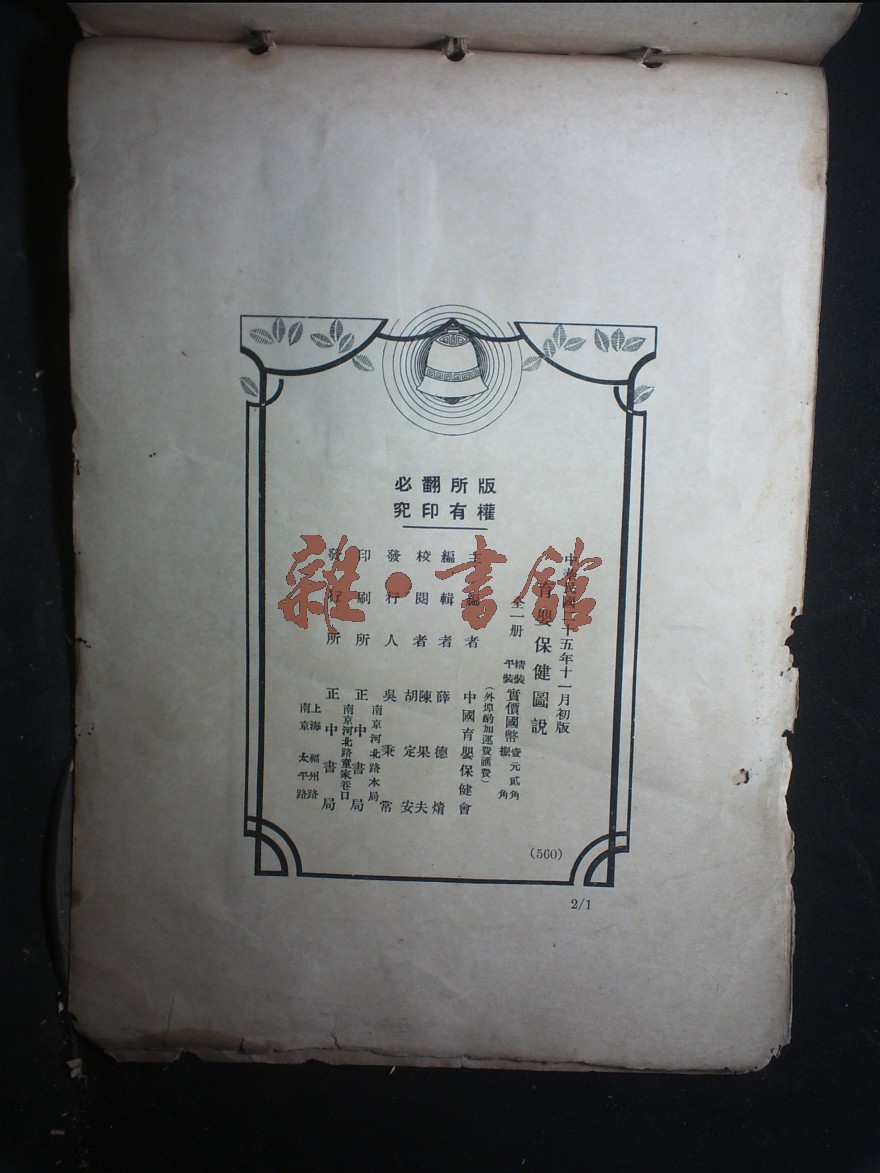 版權所有
翻印必究
中華民國二十五年十一月初版
育嬰保健圖說
全一册
精裝 平裝 實價國幣 壹元貳角 角
(外埠酌加運費匯費)
主編者 中國育嬰保健會
編輯者 薛德焴
校閱者 陳果夫 胡定安
發行人 吳秉常
南京河北路本局
印刷所 正中書局
南京河北路童家巷口
發行所 正中書局
上海福州路
南京太平路
(560)
2/1
雜·書館